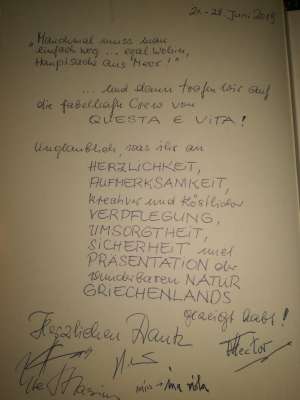 21.-28. Juni 2015
"Manchmal muss man
einfach weg ... egal wohin,
Hauptsache ans "Meer"!"
... und dann trafen wir auf
die fabelhafte Crew von
QUESTA E VITA!
Unglaublich, was ihr an
HERZLICHKEIT,
AUFMERKSAMKEIT,
kreativer und köstlicher
VERPFLEGUNG,
UMSORGTHEIT,
SICHERHEIT und
PRÄSENTATION der
wunderbaren NATUR
GRIECHENLANDS
gezeigt habt!
Herzlichen Dank
Hector